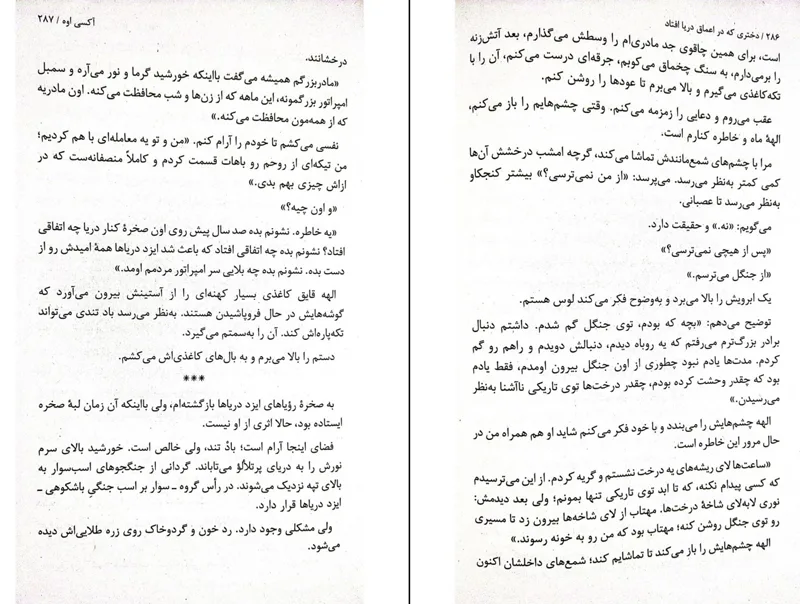 ۲۸۶ / دختری که در اعماق دریا افتاد
است، برای همین چاقوی جد مادری‌ام را وسطش می‌گذارم، بعد آتش‌زنه
را برمی‌دارم، به سنگ چخماق می‌کوبم، جرقه‌ای درست می‌کنم، آن را با
تکه‌کاغذی می‌گیرم و بالا می‌برم تا عودها را روشن کنم.
عقب می‌روم و دعایی را زمزمه می‌کنم. وقتی چشم‌هایم را باز می‌کنم،
الههٔ ماه و خاطره کنارم است.
مرا با چشم‌های شمع‌مانندش تماشا می‌کند، گرچه امشب درخشش آن‌ها
کمی کمتر به‌نظر می‌رسد. می‌پرسد: «از من نمی‌ترسی؟» بیشتر کنجکاو
به‌نظر می‌رسد تا عصبانی.
می‌گویم: «نه.» و حقیقت دارد.
«پس از هیچی نمی‌ترسی؟»
«از جنگل می‌ترسم.»
یک ابرویش را بالا می‌برد و به‌وضوح فکر می‌کند لوس هستم.
توضیح می‌دهم: «بچه که بودم، توی جنگل گم شدم. داشتم دنبال
برادر بزرگ‌ترم می‌رفتم که یه روباه دیدم، دنبالش دویدم و راهم رو گم
کردم. مدت‌ها یادم نبود چطوری از اون جنگل بیرون اومدم، فقط یادم
بود که چقدر وحشت کرده بودم، چقدر درخت‌ها توی تاریکی ناآشنا به‌نظر
می‌رسیدن.»
الهه چشم‌هایش را می‌بندد و با خود فکر می‌کنم شاید او هم همراه من در
حال مرور این خاطره است.
«ساعت‌ها لای ریشه‌های یه درخت نشستم و گریه کردم. از این می‌ترسیدم
که کسی پیدام نکنه، که تا ابد توی تاریکی تنها بمونم؛ ولی بعد دیدمش:
نوری لابه‌لای شاخهٔ درخت‌ها. مهتاب از لای شاخه‌ها بیرون زد تا مسیری
رو توی جنگل روشن کنه؛ مهتاب بود که من رو به خونه رسوند.»
الهه چشم‌هایش را باز می‌کند تا تماشایم کند؛ شمع‌های داخلشان اکنون
اکسی اوه / ۲۸۷
درخشانند.
«مادربزرگم همیشه می‌گفت بااینکه خورشید گرما و نور می‌آره و سمبل
امپراتور بزرگمونه، این ماهه که از زن‌ها و شب محافظت می‌کنه. اون مادریه
که از همه‌مون محافظت می‌کنه.»
نفسی می‌کشم تا خودم را آرام کنم. «من و تو یه معامله‌ای با هم کردیم؛
من تیکه‌ای از روحم رو باهات قسمت کردم و کاملاً منصفانه‌ست که در
ازاش چیزی بهم بدی.»
«و اون چیه؟»
«یه خاطره. نشونم بده صد سال پیش روی اون صخرهٔ کنار دریا چه اتفاقی
افتاد؟ نشونم بده چه اتفاقی افتاد که باعث شد ایزد دریاها همهٔ امیدش رو از
دست بده. نشونم بده چه بلایی سر امپراتور مردمم اومد.»
الهه قایق کاغذی بسیار کهنه‌ای را از آستینش بیرون می‌آورد که
گوشه‌هایش در حال فروپاشیدن هستند. به‌نظر می‌رسد باد تندی می‌تواند
تکه‌پاره‌اش کند. آن را به‌سمتم می‌گیرد.
دستم را بالا می‌برم و به بال‌های کاغذی‌اش می‌کشم.
***
به صخرهٔ رؤیاهای ایزد دریاها بازگشته‌ام، ولی بااینکه آن زمان لبهٔ صخره
ایستاده بود، حالا اثری از او نیست.
فضای اینجا آرام است؛ بادْ تند، ولی خالص است. خورشید بالای سرم
نورش را به دریای پرتلألؤ می‌تاباند. گردانی از جنگجوهای اسب‌سوار به
بالای تپه نزدیک می‌شوند. در رأس گروه ـ سوار بر اسب جنگیِ باشکوهی ـ
ایزد دریاها قرار دارد.
ولی مشکلی وجود دارد. رد خون و گردوخاک روی زره طلایی‌اش دیده
می‌شود.